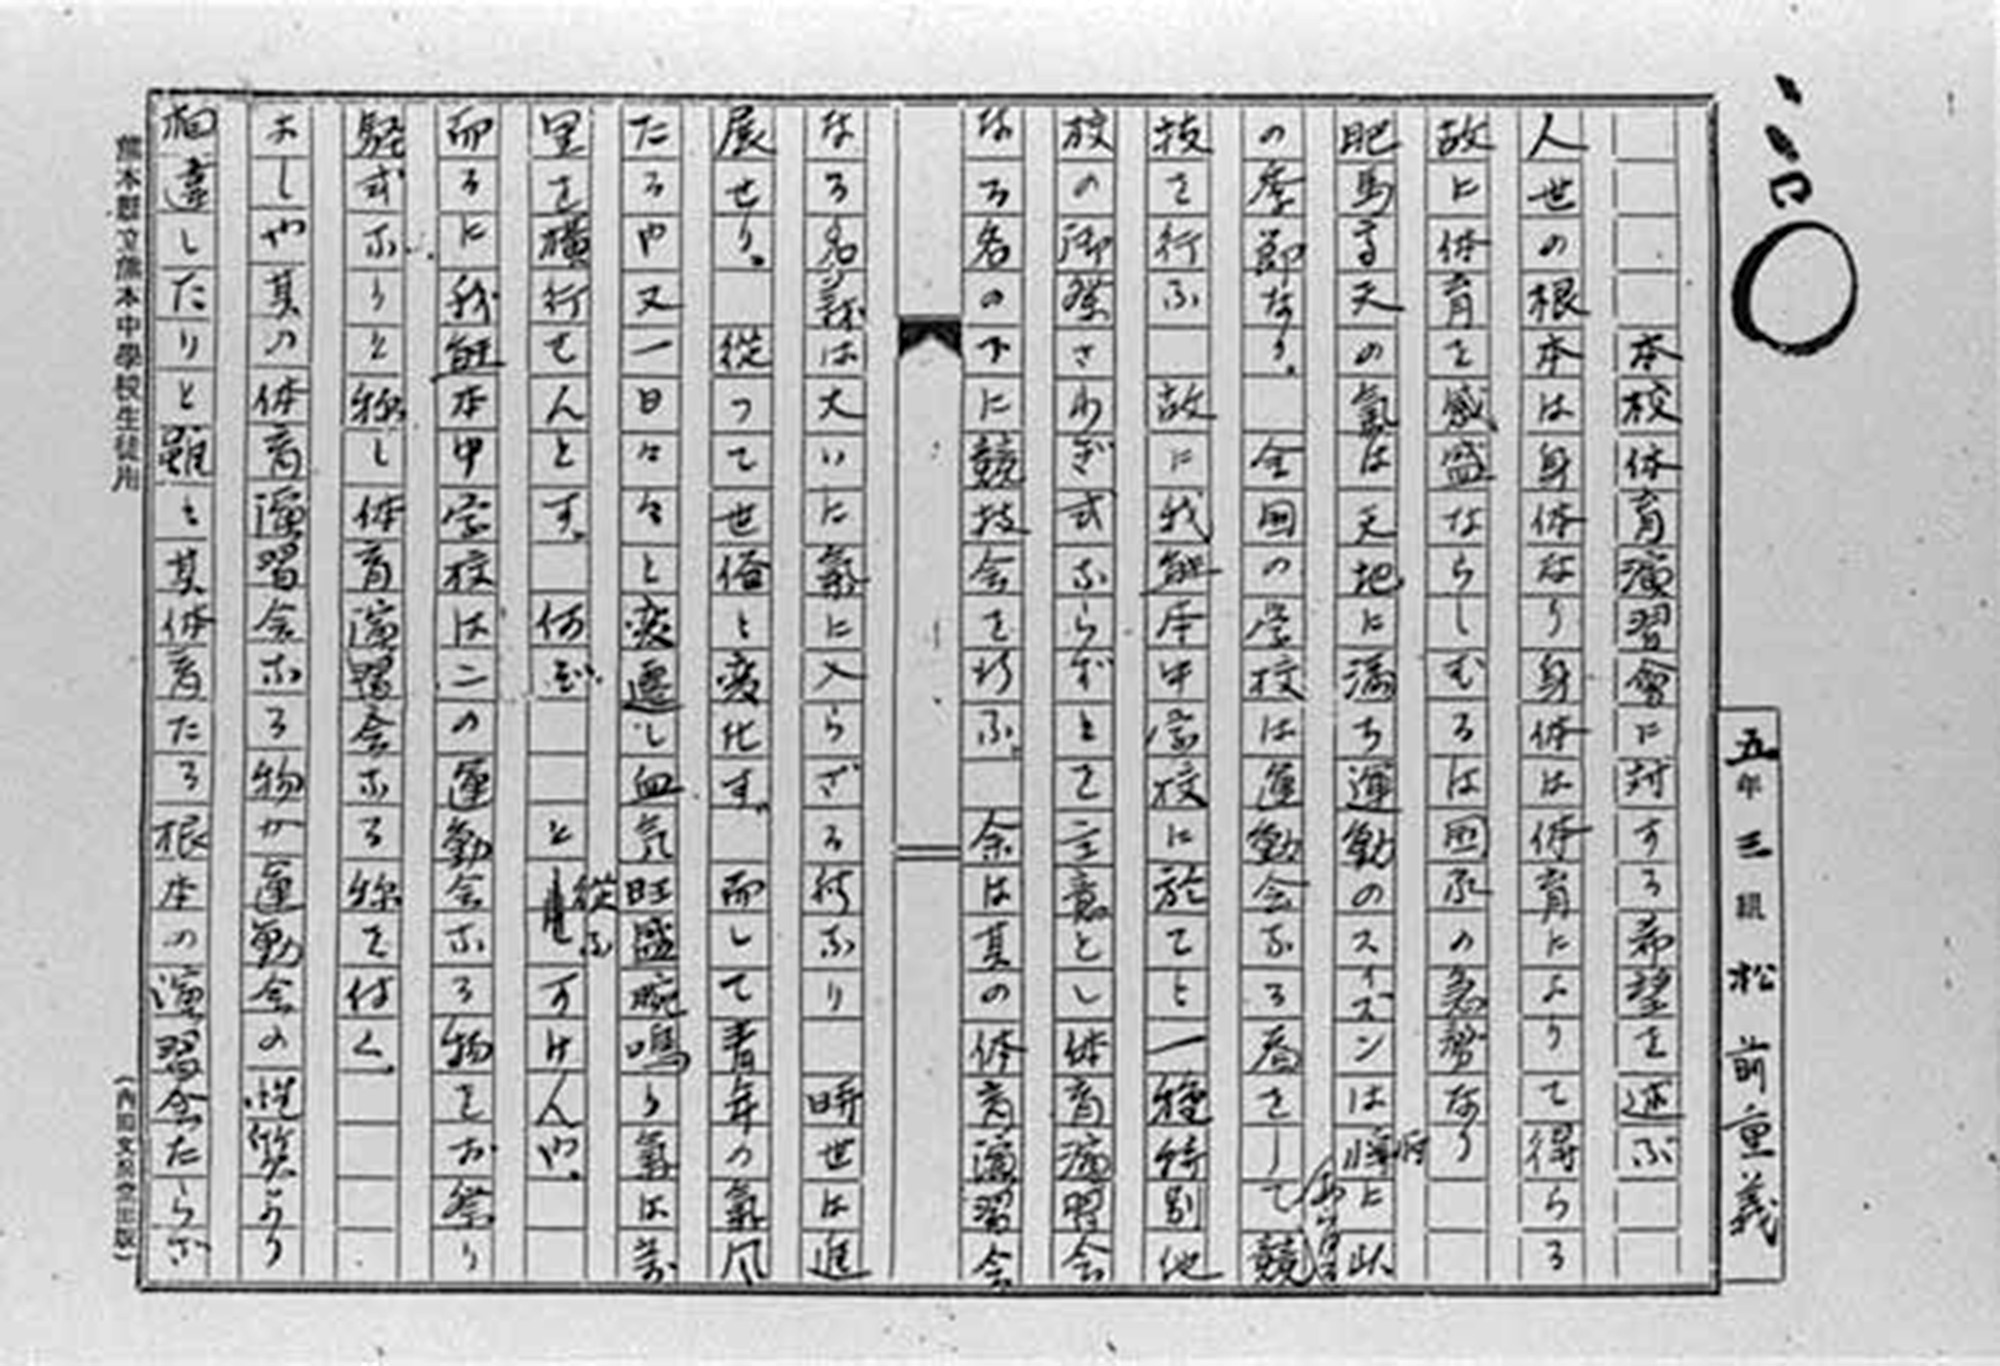 五年三組 松前重義
本校体育演習會に対する希望を述ぶ
人世の根本は身体なり身体は体育によりて得らる
故に体育を盛ならしむるは国家の急務なり
肥馬高天の氣は天地に満ち運動のスイズンは将に此
の季節なり。 全国の学校は運動会なる名をして競
技を行ふ 故に我熊本中学校に於ても一種特別他
校の御祭さわぎ式ならずとを主意とし体育演習会
なる名の下に競技会を行ふ。 余は其の体育演習会
なる名義は大いに氣に入らざる所なり 時世は進
展せり。 従つて世俗も変化す。 而して青年の氣風
たるや又一日々々と変遷し血気旺盛腕鳴り氣は万
里を横行せんとす。 何ぞ と従ふ可けんや。
而るに我熊本中学校は二の運動会なる物をお祭り
騒式なりと称し体育演習会なる称を付く。
よしや其の体育演習会なる物が運動会の 
相違したりと雖も其体育たる根本の演習会たらざ
熊本縣立熊本中學校生徒用